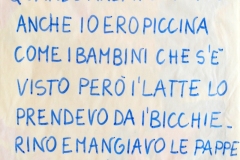 ANCHE IO ERO PICCINA
COME I BAMBINI CHE S'È
VISTO PERÒ I' LATTE LO
PRENDEVO DA I' BICCHIE-
RINO E MANGIAVO LE PAPPE